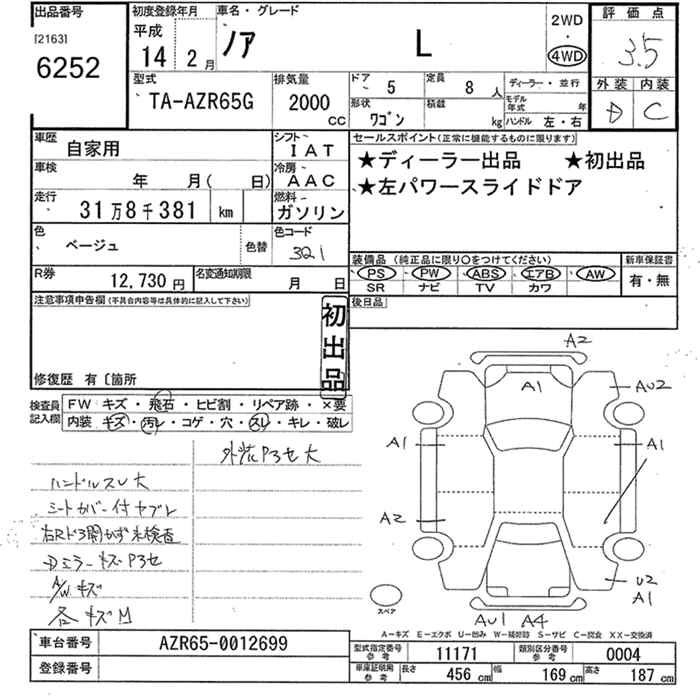 出品番号
[2163]
6252
初度登録年月
平成
14年 2月
車名・グレード
ノア L
2WD
・
4WD
評価点
3.5
外装 内装
D C
型式
TA-AZR65G
排気量
2000
CC
ドア 5
定員 8人
ディーラー・並行
形状 ワゴン
積載 kg
モデル年式 年
ハンドル 左・右
車歴 自家用
シフト IAT
車検 年 月( 日)
冷房 AAC
走行 31万8千381 km
燃料 ガソリン
色 ベージュ
色替
色コード 321
R券 12,730円
名変通知期限 月 日
セールスポイント(正常に機能するものに限ります)
★ディーラー出品 ★初出品
★左パワースライドドア
装備品 (純正品に限り○をつけてください)
PS PW ABS エアB AW
SR ナビ TV カワ
新車保証書
有・無
後日品
注意事項申告欄(不具合内容等は具体的に記入して下さい)
初出品
修復歴 有 〔箇所
検査員記入欄
FW キズ・飛石・ヒビ割・リペア跡・×要
内装 キズ・汚レ・コゲ・穴・スレ・キレ・破レ
外装Pヨセ大
ハンドルスレ大
シートカバー付ヤブレ
右Rドア開かず未検査
Dミラーキズ Pヨセ
A/Wキズ
各キズM
A2
A1
AU2
A1
A1
A2
U2
A1
スペア
AU1 A4
A—キズ E—エクボ U—凹み W—補修跡 S—サビ C—腐食 XX—交換済
車台番号 AZR65-0012699
登録番号
型式指定番号 参考 11171
類別区分番号 参考 0004
車庫証明用 参考
長さ 456 cm
幅 169 cm
高さ 187 cm